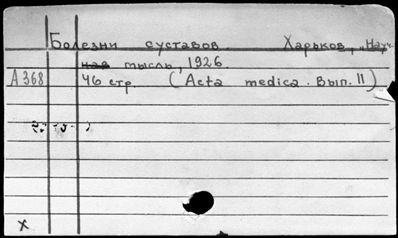 Болезни суставов. Харьков, „Науч-
ная мысль, 1926.
А368 46 стр. (Acta medica. Вып. II)
x